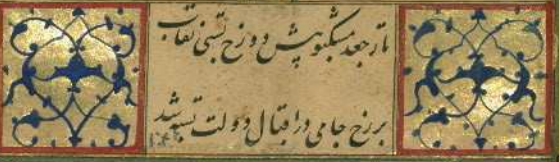 تا ز جعد مشکبو پیش دو رخ بستی نقاب
بر رخ جامی در اقبال و دولت بسته شد